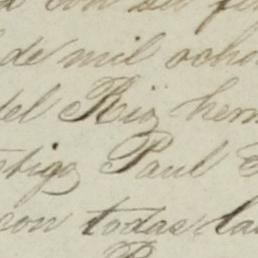 con su
de mil ocho
del Rio her
tigo Paul
ron todas la